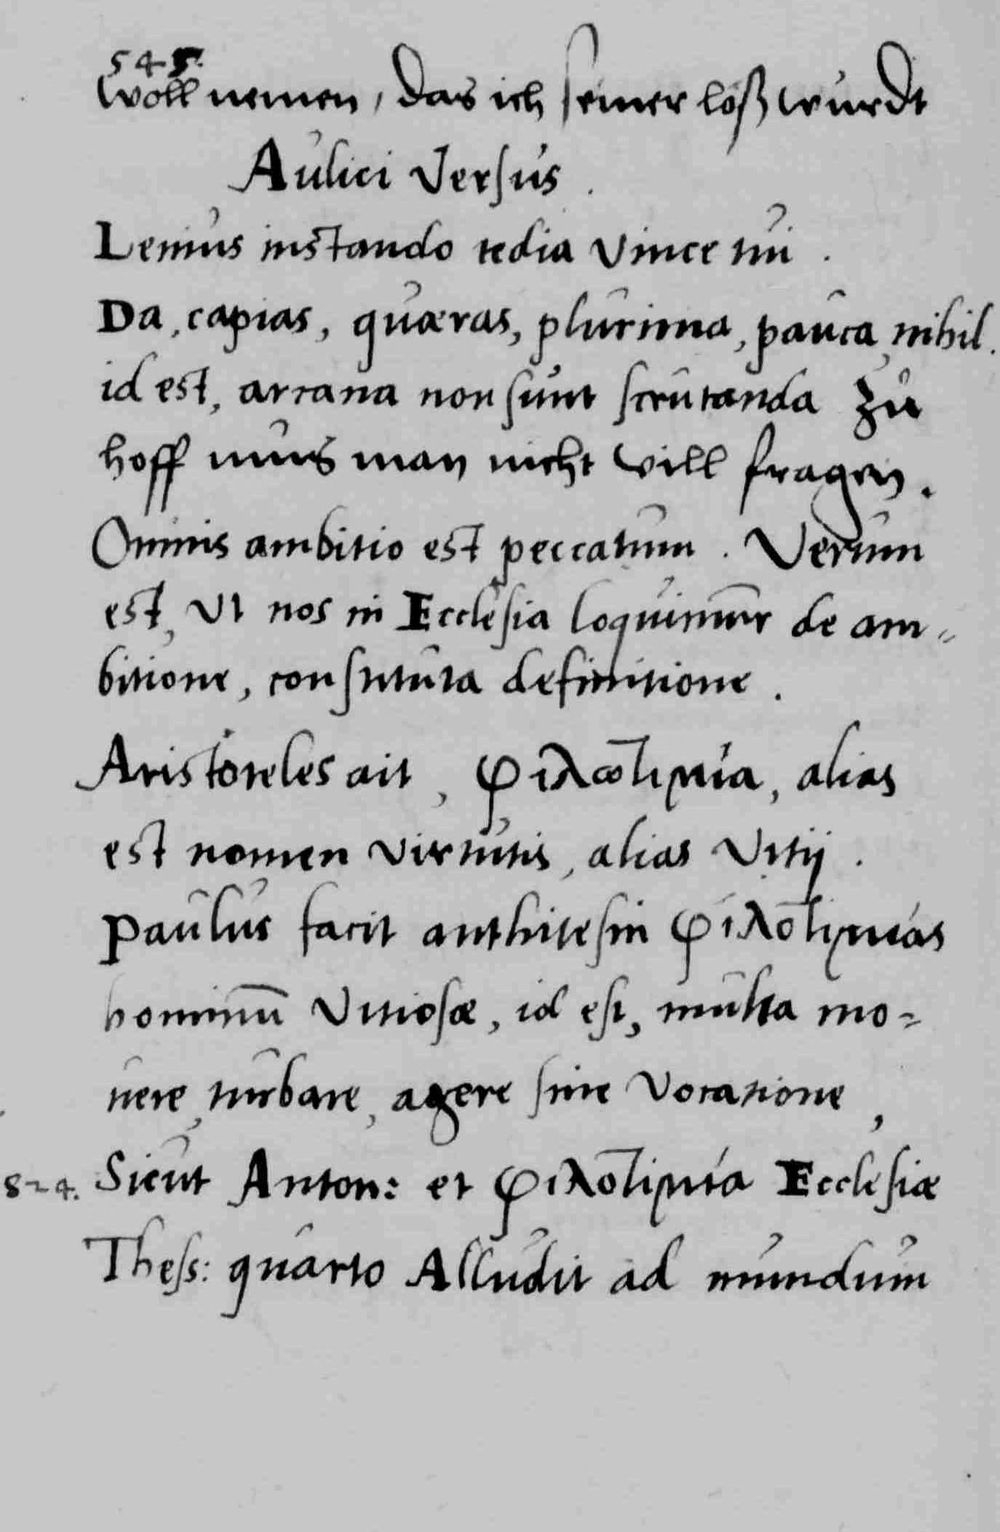 545.
woll nemen, das ich seiner loß wurdt
Aulici Versus.
Lenius instando tedia vince tui.
Da, capias, quæras, plurima, pauca, nihil.
id est, arcana non sunt scrutanda Zu
hoff mus man nicht vill fragen.
Omnis ambitio est peccatum. Verum
est, Vt nos in Ecclesia loquimur de am=
bitione, constituta definitione.
Aristoteles ait, φιλωτιμία, alias
est nomen virtutis, alias Vitij.
Paulus facit anthitesin φιλοτιμίας
hominū Vitiosæ, id est, multa mo=
uere, turbare, agere sine Vocatione,
824. Sicut Anton: et φιλοτιμία Ecclesiæ
Thess: quarto Alludit ad mundum